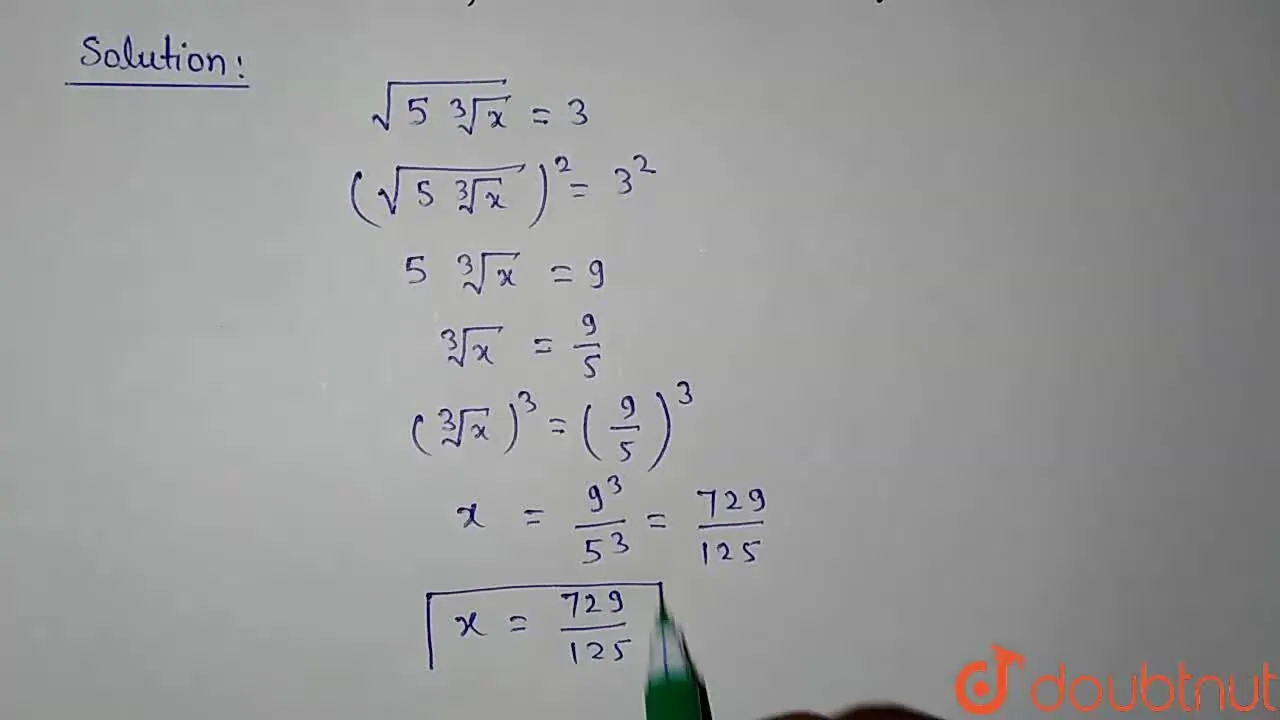 Solution:
√(5 ∛x) = 3
(√(5 ∛x))² = 3²
5 ∛x = 9
∛x = 9/5
(∛x)³ = (9/5)³
x = 9³/5³ = 729/125
x = 729/125
doubtnut